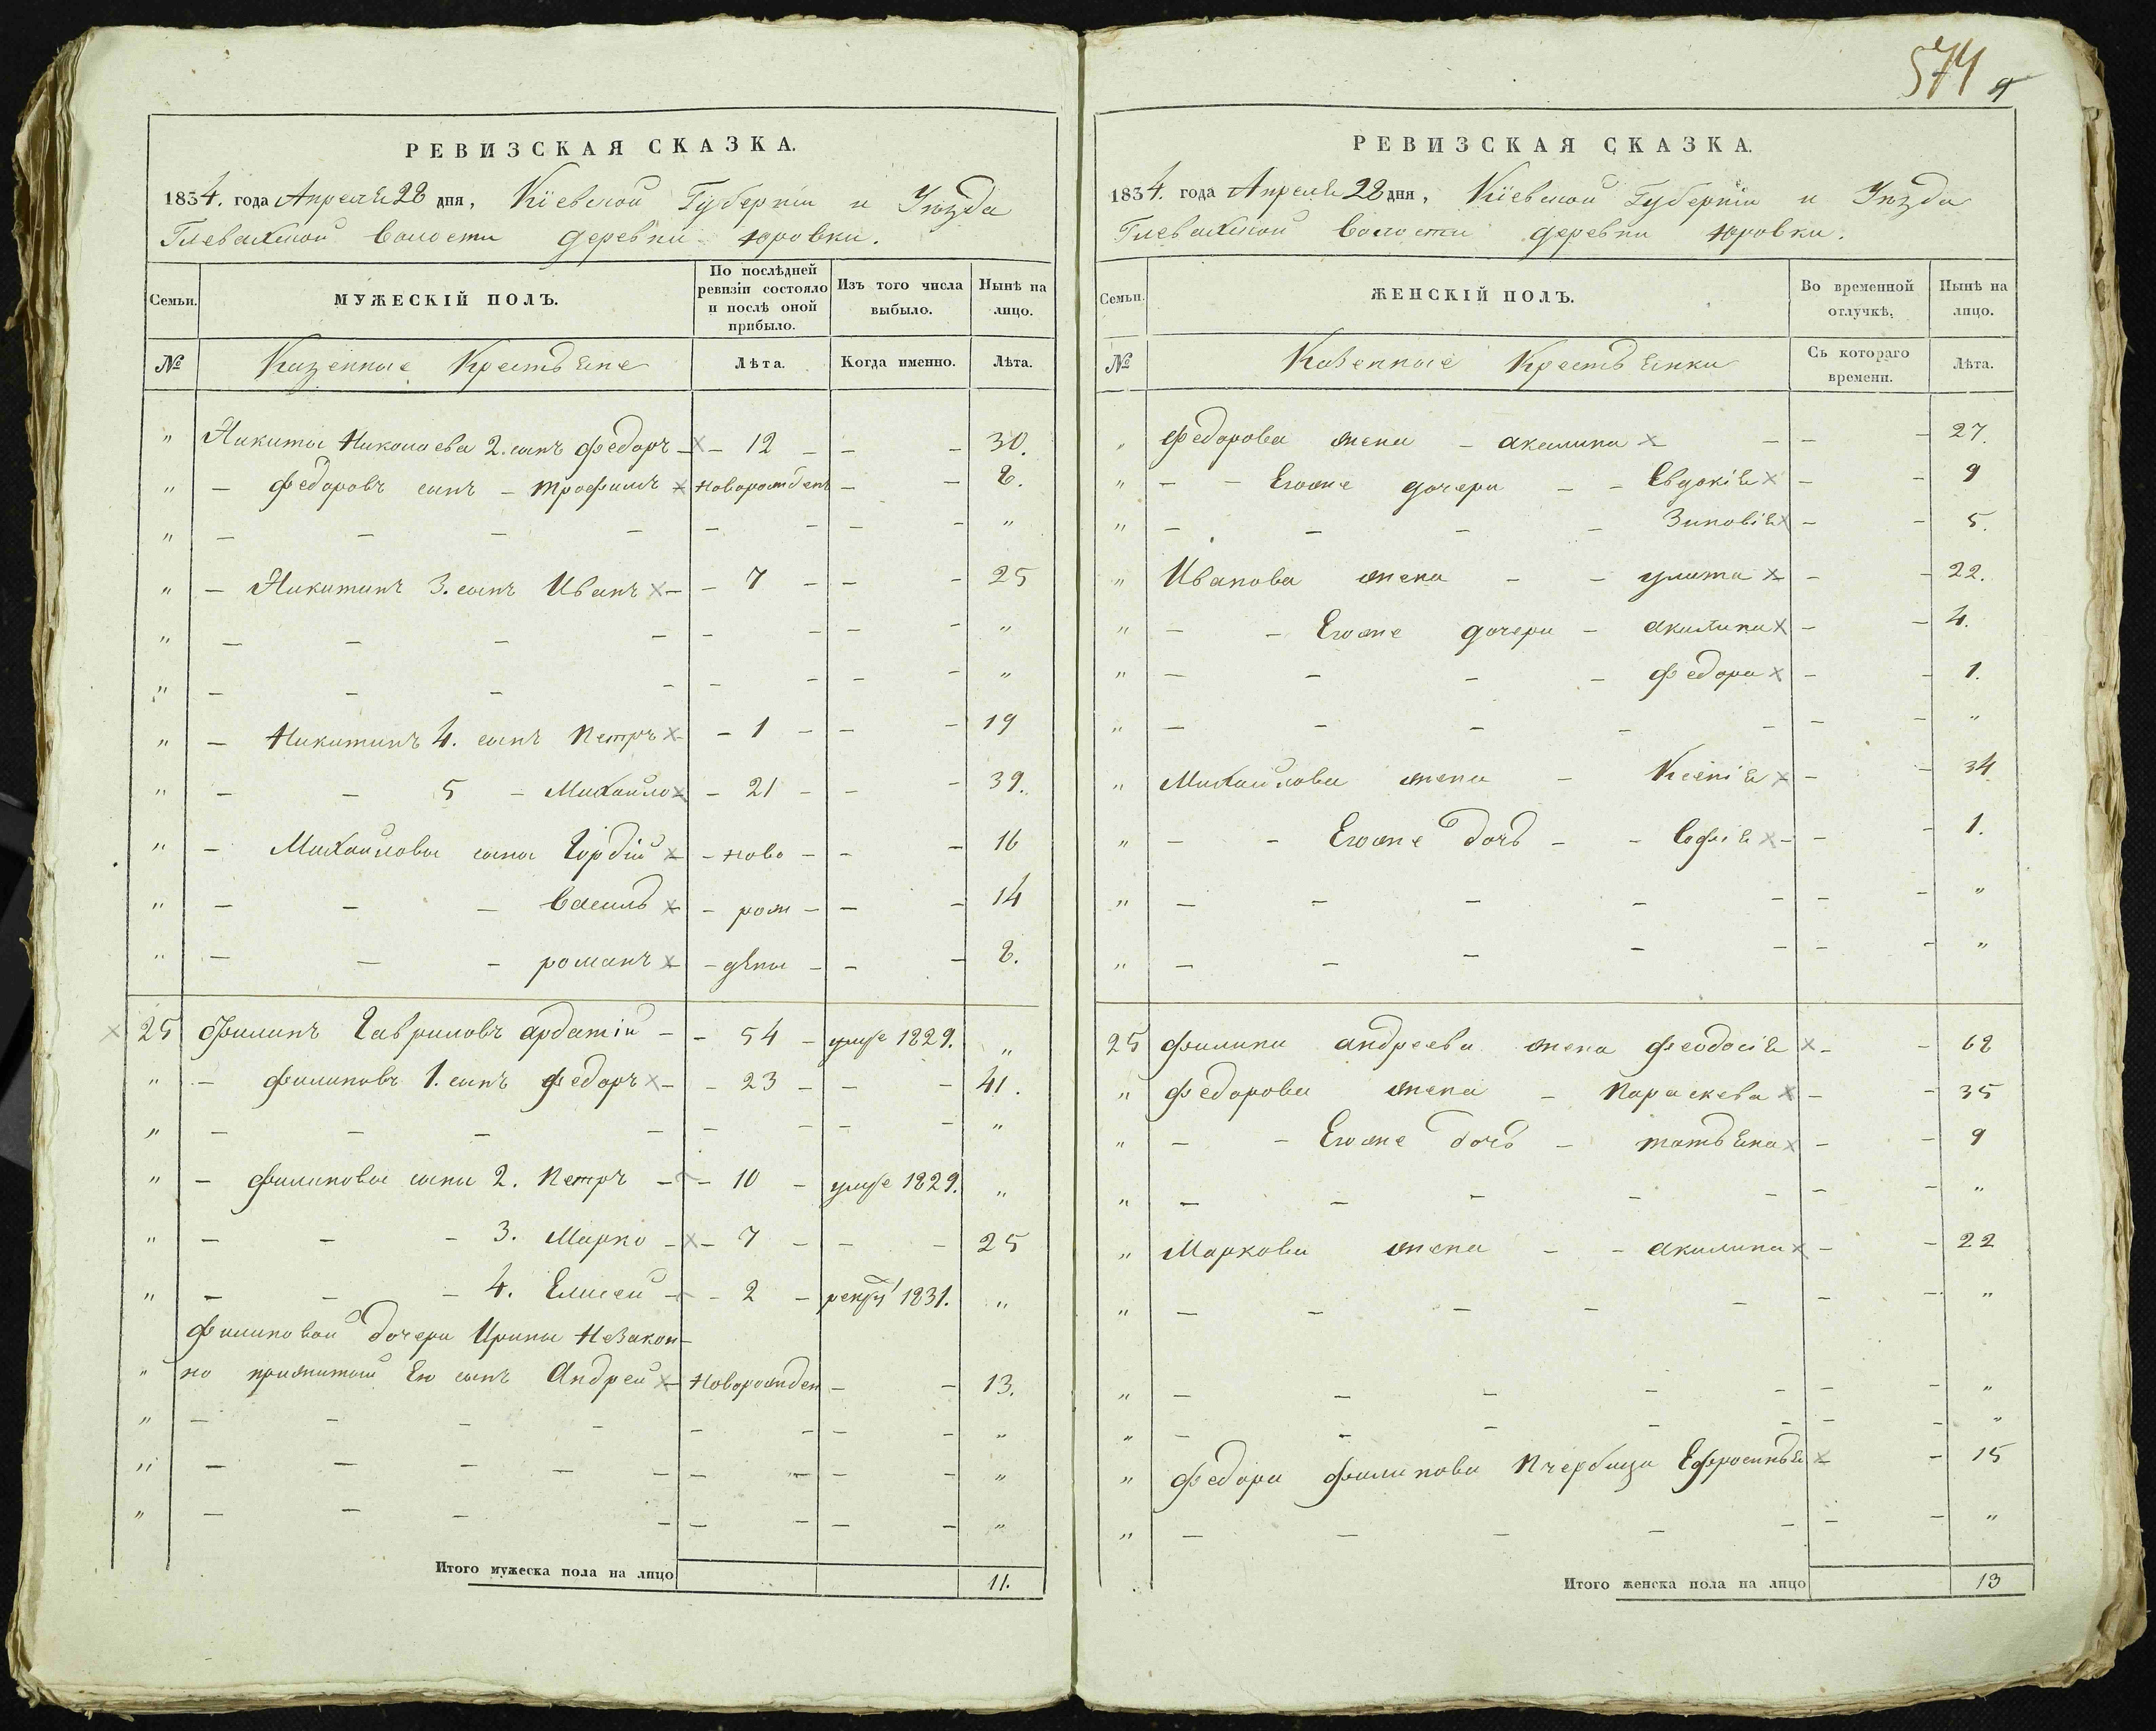 574
9
РЕВИЗСКАЯ СКАЗКА.
1834. года Апреля 28 дня, Кіевской Губерніи и Уѣзда
Глевахской волости деревни Юровки.
Семьи. МУЖЕСКІЙ ПОЛЪ. По послѣдней ревизіи состояло и послѣ оной прибыло. Изъ того числа выбыло. Нынѣ на лицо.
№ Казенные Крестьяне Лѣта. Когда именно. Лѣта.
" Никиты Николаева 2. сынъ Федоръ – 12 – – – 30.
" – Федоровъ сынъ – Трофимъ новорожден – – 8.
" – – – – – – – – "
" – Никитинъ 3. сынъ Иванъ – – 7 – – – 25
" – – – – – – – – "
" – – – – – – – – "
" – Никитинъ 4. сынъ Петръ – 1 – – – 19
" – – 5 – Михайло – 21 – – – 39.
" – Михайловы сыны Гордій – ново – – – 16
" – – – Василь – рож – – – 14
" – – – романъ – дены – – – 8.
25 Филипъ Гавриловъ ардатій – – 54 – умре 1829. "
" – Филиповъ 1. сынъ Федоръ – – 23 – – – 41.
" – – – – – – – – "
" – Филиповы сыны 2. Петръ – – 10 – умре 1829. "
" – – – 3. Марко – – 7 – – – 25
" – – – 4. Елисей – – 2 – рекру 1831. "
Филиповой дочери Ирины Незакон–
" но прижитый Ею сынъ Андрей новорожден – – 13.
" – – – – – – – – "
" – – – – – – – – – "
" – – – – – – – – "
Итого мужеска пола на лицо 11.
РЕВИЗСКАЯ СКАЗКА.
1834. года Апреля 28 дня, Кіевской Губерніи и Уѣзда
Глевахской волости деревни Юровки.
Семьи. ЖЕНСКІЙ ПОЛЪ. Во временной отлучкѣ. Нынѣ на лицо.
№ Казенные Крестьянки Съ котораго времени. Лѣта.
" Федорова жена – акилина – – – 27.
" – – Егоже дочери – – Евдокія – – 9
" – – – – Зиновія – – 5.
" Иванова жена – – улита – – 22.
" – – Егоже дочери – акилина – – 4.
" – – – – Федора – – 1.
" – – – – – – – "
" Михайлова жена – Ксенія – – 34
" – – Егоже дочь – – Софія – – – 1.
" – – – – – – – "
" – – – – – – – "
25 Филипа андреева жена феодосія – – 68
" Федорова жена – Параскева – – 35
" – – Егоже дочь – татьяна – – 9
" – – – – – – – "
" Маркова жена – – акилина – – 22
" – – – – – – – "
" – – – – – – – "
" – – – – – – – "
" Федора Филипова Пчербица Ефросинья – 15
" – – – – – – – "
Итого женска пола на лицо 13